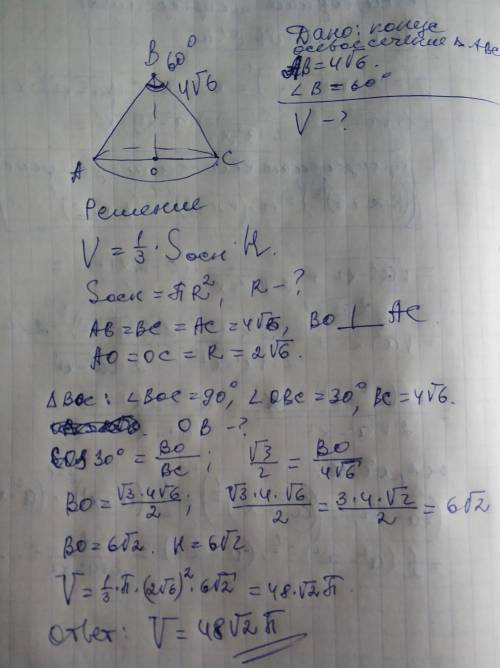 Дано: конус
осевое сечение △ABC
AB=4√6.
∠B=60°
V-?
B 60°
4√6
A
O
C
Решение
V = 1/3 · Sосн · H.
Sосн = πR², R-?
AB=BC=AC=4√6, BO ⊥ AC.
AO=OC=R=2√6.
△BOC: ∠BOC=90°, ∠OBC=30°, BC=4√6.
OB-?
cos30° = BO/BC; √3/2 = BO/4√6
BO = √3·4√6/2; √3·4·√6/2 = 3·4·√2/2 = 6√2
BO=6√2. H=6√2.
V = 1/3·π·(2√6)²·6√2 = 48·√2π.
Ответ: V = 48√2π